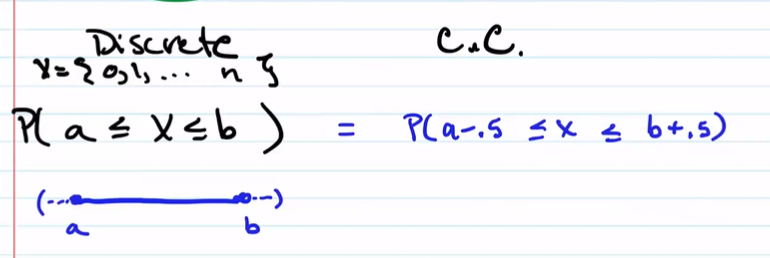 Discrete C.C.
X={0,1,... n}
P(a ≤ X ≤ b) = P(a-.5 ≤ x ≤ b+.5)
(--- ---)
a b